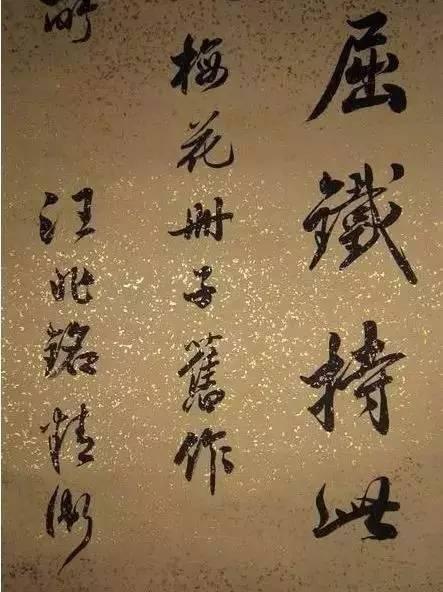 屈鐵持此
梅花冊子舊作
汪兆銘精衛